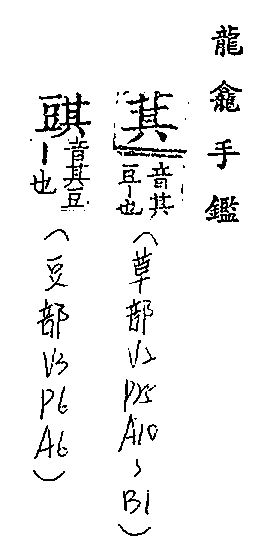 龍龕手鑑
萁音其豆丨也
(草部V2P25A10、B1)
䜺音其豆丨也
(豆部V3P6A6)